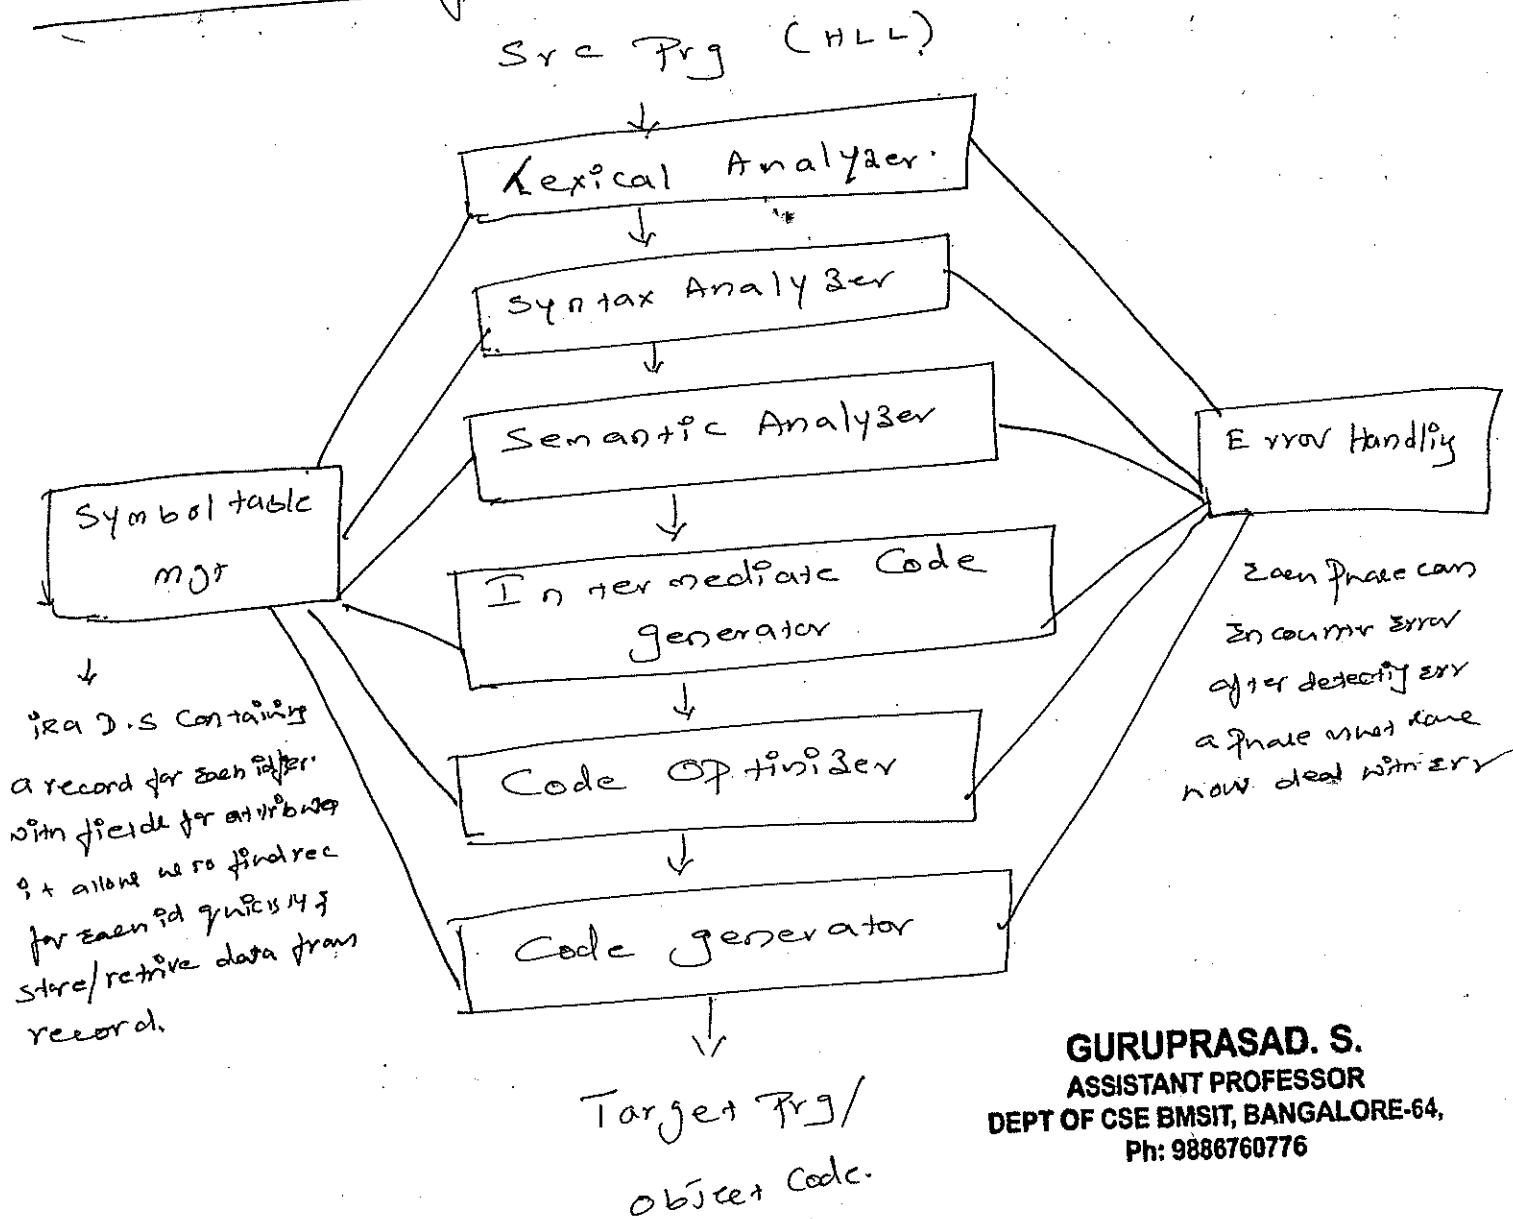 Src Prg (HLL)
Lexical Analyzer.
Syntax Analyzer
Semantic Analyzer
Error Handlig
Symbol table
mgr
Intermediate Code
generator
Code Optimizer
Code generator
Target Prg/
Object Code.
is a D.S Containing
a record for each idfier.
with fields for attributes
it allows us to find rec
for each id quickly &
store/retrive data from
record.
Each Phase can
Encounter Error
after detectig err
a Phase must
how deal with err
GURUPRASAD. S.
ASSISTANT PROFESSOR
DEPT OF CSE BMSIT, BANGALORE-64,
Ph: 9886760776